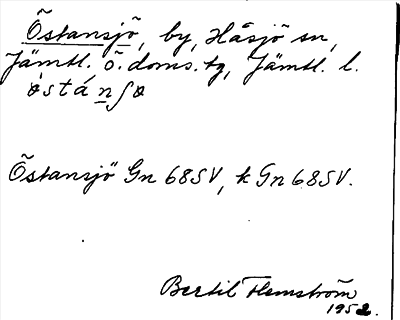 Östansjö, by, Håsjö sn,
Jämtl. ö. doms. tg, Jämtl. l.
östánʃø
Östansjö Gn 68SV, k Gn 68SV.
Bertil Flemström
1952.